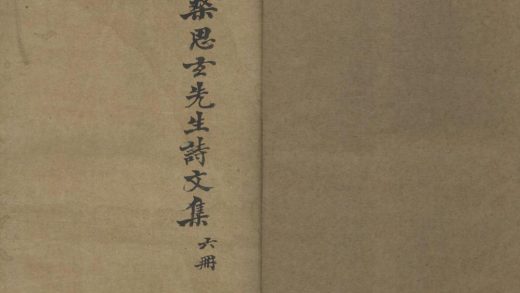 桑思玄先生詩文集
六冊